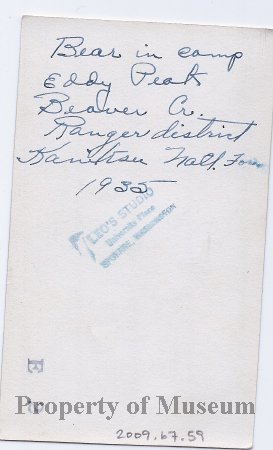 Bear in camp
Eddy Peak
Beaver Cr.
Ranger district
Kaniksu Natl. For
1935
LEO'S STUDIO
University Place
SPOKANE, WASHINGTON
E
Property of Museum
2009.67.59